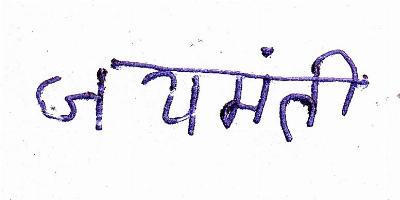 जयमंती